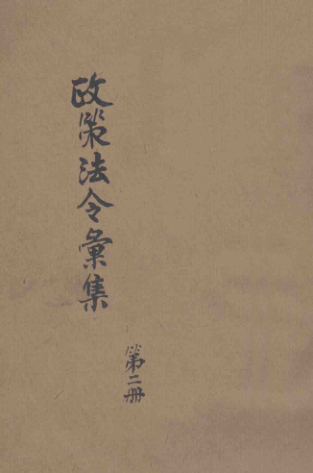 政策法令彙集
第二册